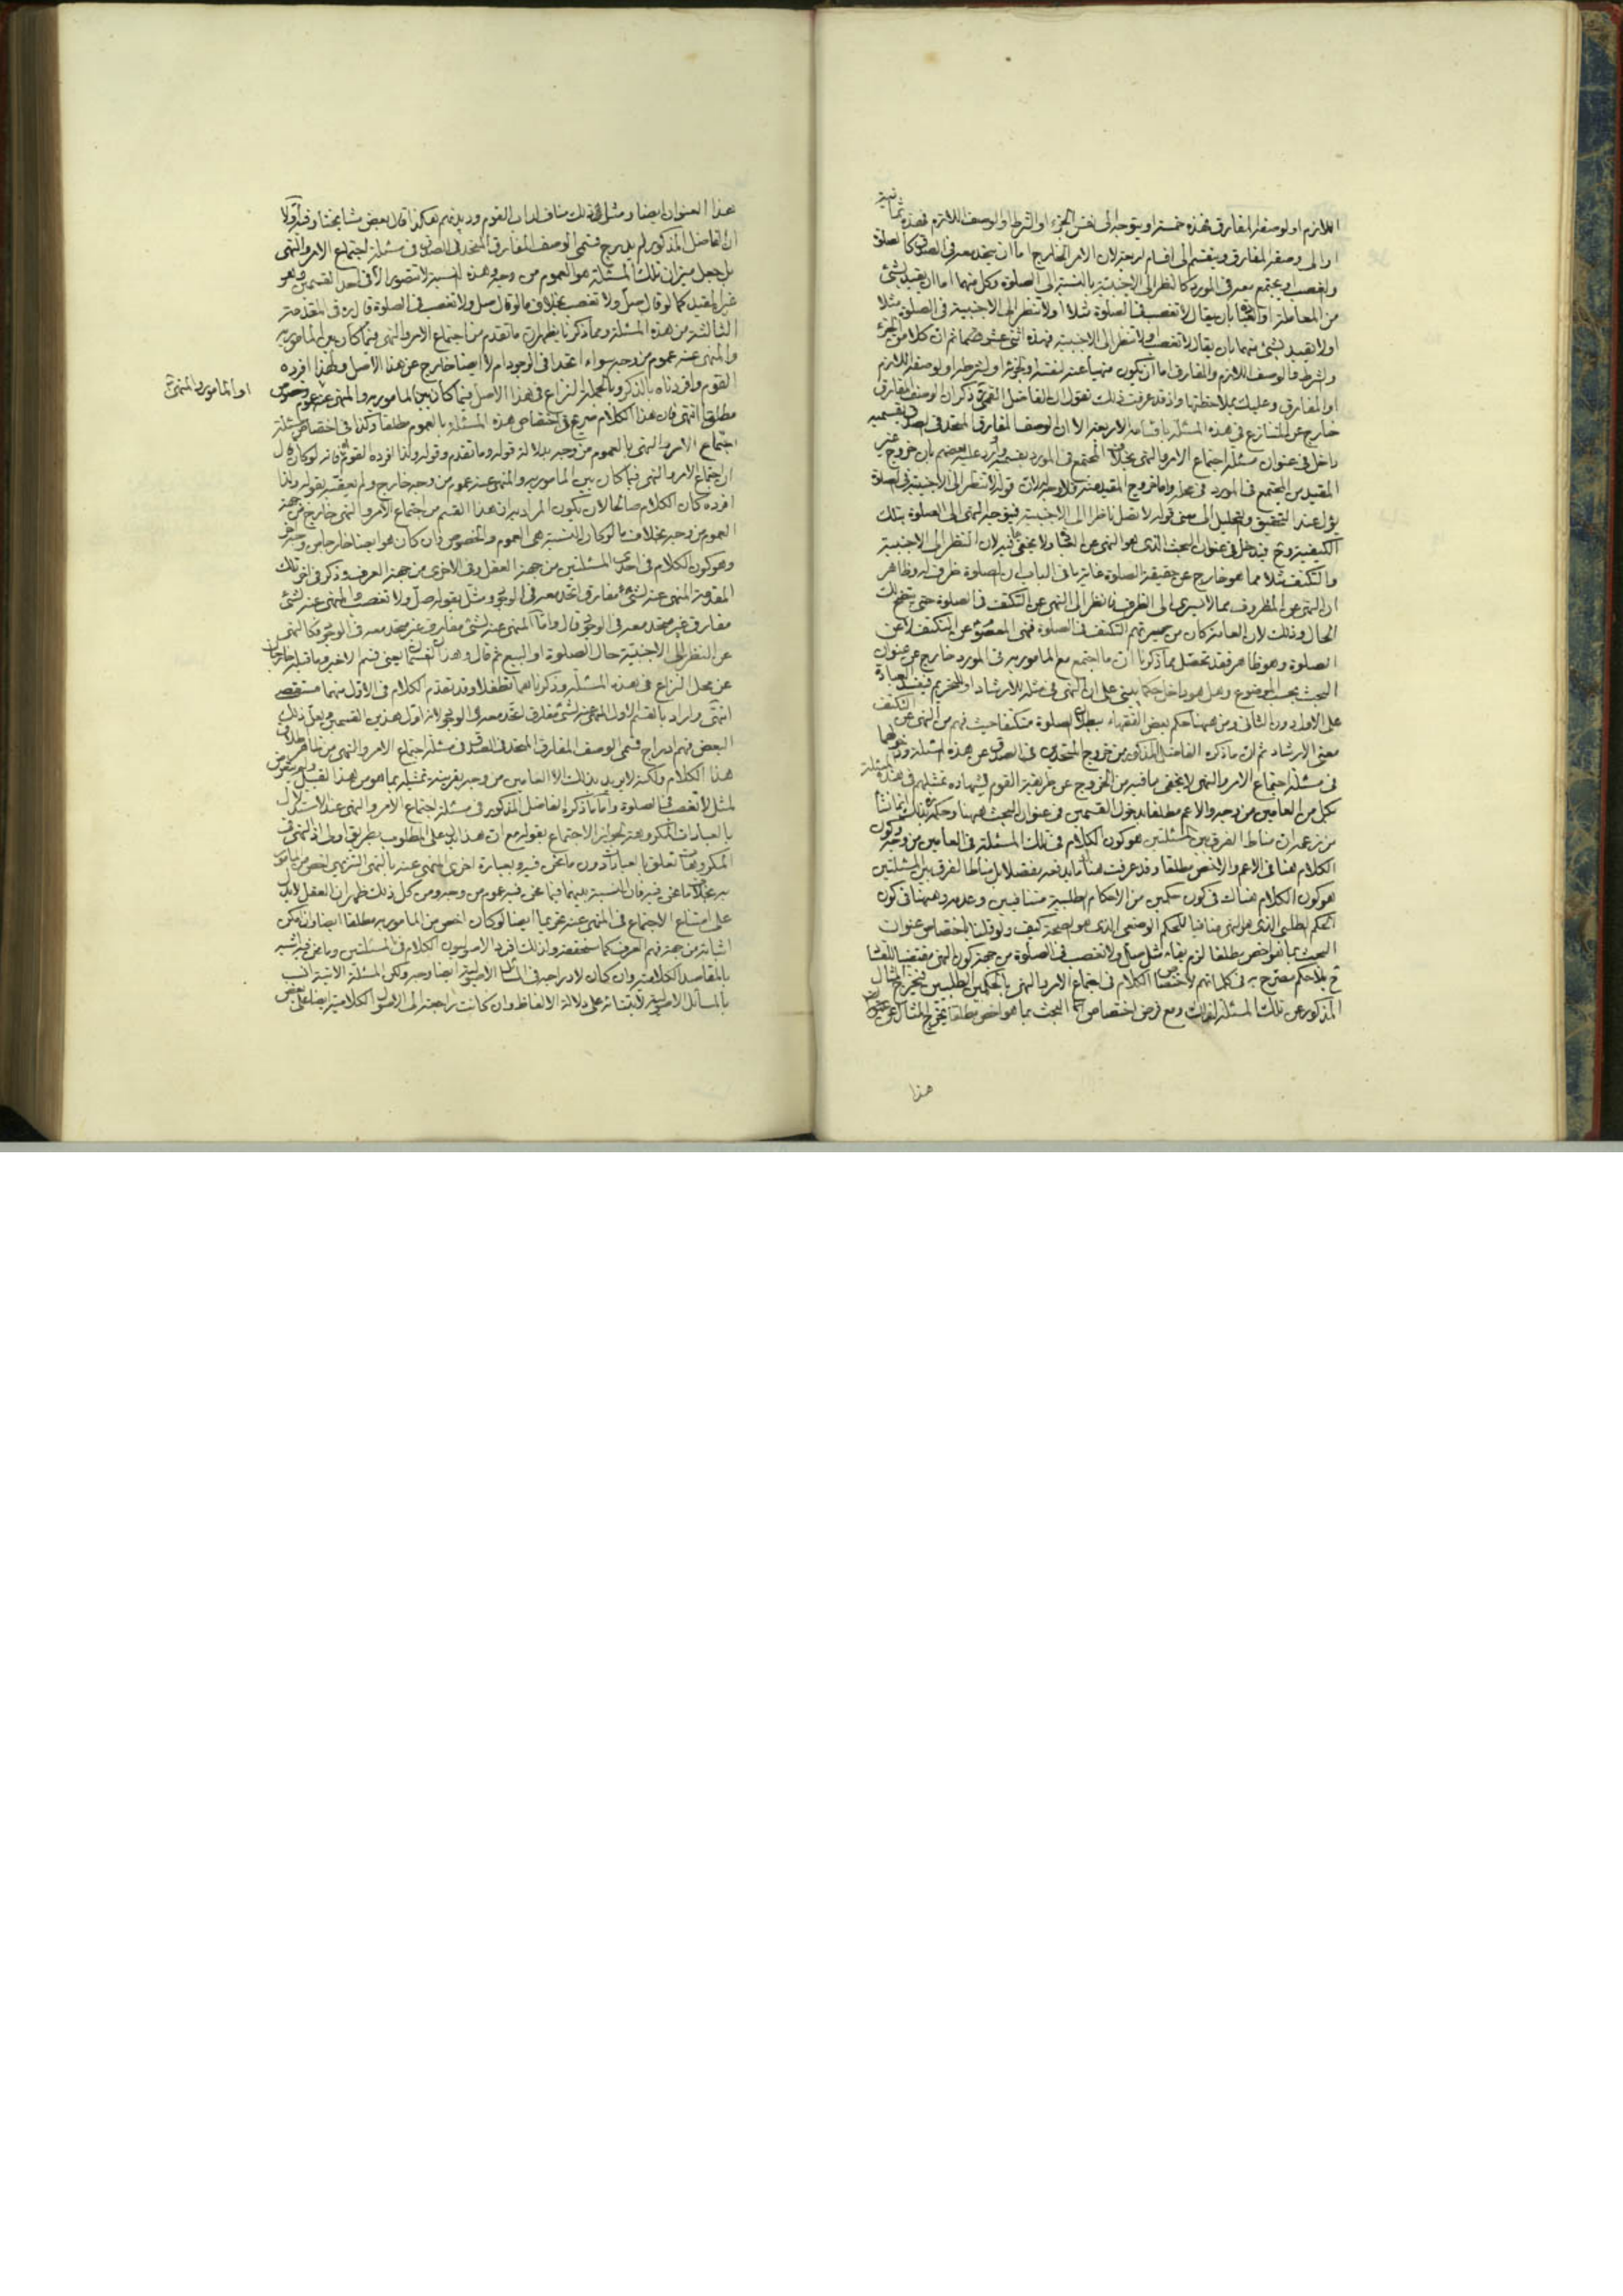 اللازم او لوصفه المفارق فهذه خمسة او يتوجه الى نفس الجزء او الشرط او الوصف اللازم فهذه ثمانية
او الى وصفه المفارق وينقسم الى اقسام اربعة لان الامر الخارج اما ان يتحد معه في الصدق كالصلوة
والغصب او يجتمع معه في المورد كالنظر الى الاجنبية بالنسبة الى الصلوة وكل منهما اما ان يقيد بشئ
من المعاملة او العبادة بان يقال لا تغصب في الصلوة مثلا او لا تنظر الى الاجنبية في الصلوة مثلا
او لا يقيد بشئ منهما بان يقال لا تغصب ولا تنظر الى الاجنبية فهذه اثنى عشر قسما ثم ان كلا من الجزء
والشرط والوصف اللازم والمفارق اما ان يكون منهيا عنه لنفسه او لجزئه او لشرطه او لوصفه اللازم
او المفارق وعليك بملاحظتها واذ قد عرفت ذلك نقول ان الفاضل القمي ذكر ان الوصف المفارق
خارج عن المتنازع في هذه المسئلة باقسامه الاربعة الا ان الوصف المفارق المتحد في الصدق بقسميه
داخل في عنوان مسئلة اجتماع الامر والنهى بخلاف المجتمع في المورد بقسميه ويرد عليه بعضهم بان خروج غير
المقيد من المجتمع في المورد في محله واما خروج المقيد منه فلا وجه له لان قوله لا تنظر الى الاجنبية في الصلوة
يؤل عند التحقيق والتحليل الى معنى قوله لا تصل ناظرا الى الاجنبية فيتوجه النهى الى الصلوة بتلك
الكيفية وح فيدخل في عنوان البحث الذى هو النهى عن العبادة ولا يخفى ما فيه لان النظر الى الاجنبية
والتكتف مثلا مما هو خارج عن حقيقة الصلوة غاية ما في الباب ان الصلوة ظرف له وظاهر
ان النهى عن المظروف مما لا يسرى الى الظرف فانظر الى النهى عن التكتف في الصلوة حتى يتضح لك
الحال وذلك لان العامة كان من سيرتهم التكتف في الصلوة فنهى المعصوم عن التكتف لا عن
الصلوة وهو ظاهر فقد تحصل مما ذكرنا ان ما اجتمع مع المامور به في المورد خارج عن عنوان
البحث بحسب الموضوع وهل هو داخل حكما يبنى على ان النهى في مثله للارشاد او للتحريم فيفسد العبادة
على الاول دون الثانى ومن ههنا حكم بعض الفقهاء ببطلان الصلوة متكتفا حيث فهم من النهى عن التكتف
معنى الارشاد ثم ان ما ذكره الفاضل المذكور من خروج المتحدين في الصدق عن هذه المسئلة ودخولهما
في مسئلة اجتماع الامر والنهى لا يخفى ما فيه من الخروج عن طريقة القوم لشهادة تمثيلهم في هذه المسئلة
بكل من العامين من وجه والاعم مطلقا بدخول القسمين في عنوان البحث ههنا وحكمه بذلك انما نشأ
من زعمه ان مناط الفرق بين المسئلتين هو كون الكلام في تلك المسئلة في العامين من وجه وكون
الكلام هنا في الاعم والاخص مطلقا وقد عرفت هناك ما يدفعه بل مناط الفرق بين المسئلتين
هو كون الكلام هناك في كون حكمين من الاحكام الطلبية متنافيين وعدمه وههنا في كون
الحكم الطلبى الذى هو النهى منافيا للحكم الوضعى الذى هو الصحة كيف ولو قلنا باختصاص عنوان
البحث بما هو اخص مطلقا لزم بقاء مثل صل ولا تغصب في الصلوة من جهة كون النهى مقتضيا للفساد
ح بلا حكم مصرح به في كلماتهم لاختصاص الكلام في اجتماع الامر والنهى بالحكمين الطلبيين فيخرج المثال
المذكور عن تلك المسئلة لذلك ومع فرض اختصاص البحث بما هو اخص مطلقا يخرج المثال عن عنوان
هذا
هذا العنوان ايضا ومثل ذلك مناف لداب القوم وديدنهم هكذا قال بعض مشايخنا وفيه اولا
ان الفاضل المذكور لم يدرج قسمى الوصف المفارق المتحد في الصدق في مسئلة اجتماع الامر والنهى
بل جعل ميزان تلك المسئلة هو العموم من وجه وهذه النسبة لا تتصور الا في احد القسمين وهو
غير المقيد كما لو قال صل ولا تغصب بخلاف ما لو قال صل ولا تغصب في الصلوة قال ره في المقدمة
الثالثة من هذه المسئلة ومما ذكرنا يظهر ان ما تقدم من اجتماع الامر والنهى فيما كان بين المامور به
والمنهى عنه عموم من وجه سواء اتحدا في الوجود ام لا ايضا خارج عن هذا الاصل ولهذا افرده
القوم وافردناه بالذكر وبالجملة النزاع في هذا الاصل فيما كان بين المامور به والمنهى عنه عموم وخصوص
او المامور به والمنهى عنه
مطلقا انتهى فان هذا الكلام صريح في اختصاص هذه المسئلة بالعموم مطلقا وكذا في اختصاص مسئلة
اجتماع الامر والنهى بالعموم من وجه بدلالة قوله وما تقدم وقوله ولذا افرده القوم فانه لو كان قال
ان اجتماع الامر والنهى فيما كان بين المامور به والمنهى عنه عموم من وجه خارج ولم يعقبه بقوله ولذا
افرده كان الكلام صالحا لان يكون المراد به ان هذا القسم من اجتماع الامر والنهى خارج من جهة
العموم من وجه بخلاف ما لو كان النسبة هى العموم والخصوص فان كان هو ايضا خارجا من وجه اخر
وهو كون الكلام في احدى المسئلتين من جهة العقل وفى الاخرى من جهة العرف وذكر في اخر تلك
المقدمة المنهى عنه لشئ مفارق اتحد معه في الوجود ومثل بقوله صل ولا تغصب والمنهى عنه لشئ
مفارق غير متحد معه في الوجود قال واما المنهى عنه لشئ مفارق غير متحد معه في الوجود فكالنهى
عن النظر الى الاجنبية حال الصلوة او البيع ثم قال وهذان القسمان يعنى قسم الاخير وما قبله خارجان
عن محل النزاع في هذه المسئلة وذكرناهما تطفلا وقد تقدم الكلام في الاول منهما مستقصى
انتهى واراد بالقسم الاول المنهى عنه لشئ مفارق اتحد معه في الوجود لانه اول هذين القسمين ولعل ذلك
البعض فهم ادراج قسمى الوصف المفارق المتحد في الصدق في مسئلة اجتماع الامر والنهى من ظاهر اطلاق
هذا الكلام ولكنه لا يريد بذلك الا العامين من وجه بقرينة تمثيله بما هو من هذا القبيل ولم يتعرض
لمثل لا تغصب في الصلوة واما ما ذكره الفاضل المذكور في مسئلة اجتماع الامر والنهى عند الاستدلال
بالعبادات المكروهة لجواز الاجتماع بقوله مع ان هذا يدل على المطلوب بطريق اولى اذ النهى في
المكروهات تعلق بالعبادات دون ما نحن فيه وبعبارة اخرى المنهى عنه بالنهى التنزيهى اخص من المامور
به بخلاف ما نحن فيه فان النسبة بينهما فيما نحن فيه عموم من وجه ومن كل ذلك ظهر ان العقل لا يدل
على امتناع الاجتماع في المنهى عنه تحريما ايضا لو كان اخص من المامور به مطلقا ايضا وان امكن
اثباته من جهة فهم العرف كما سنحققه ولذلك افرد الاصوليون الكلام في المسئلتين وما نحن فيه اشبه
بالمقاصد الكلامية وان كان لادراجه في المسائل الاصولية ايضا وجه ولكن المسئلة الاتية انسب
بالمسائل الاصولية لابتنائه على دلالة الالفاظ وان كانت راجعة الى الاصول الكلامية ايضا على بعض